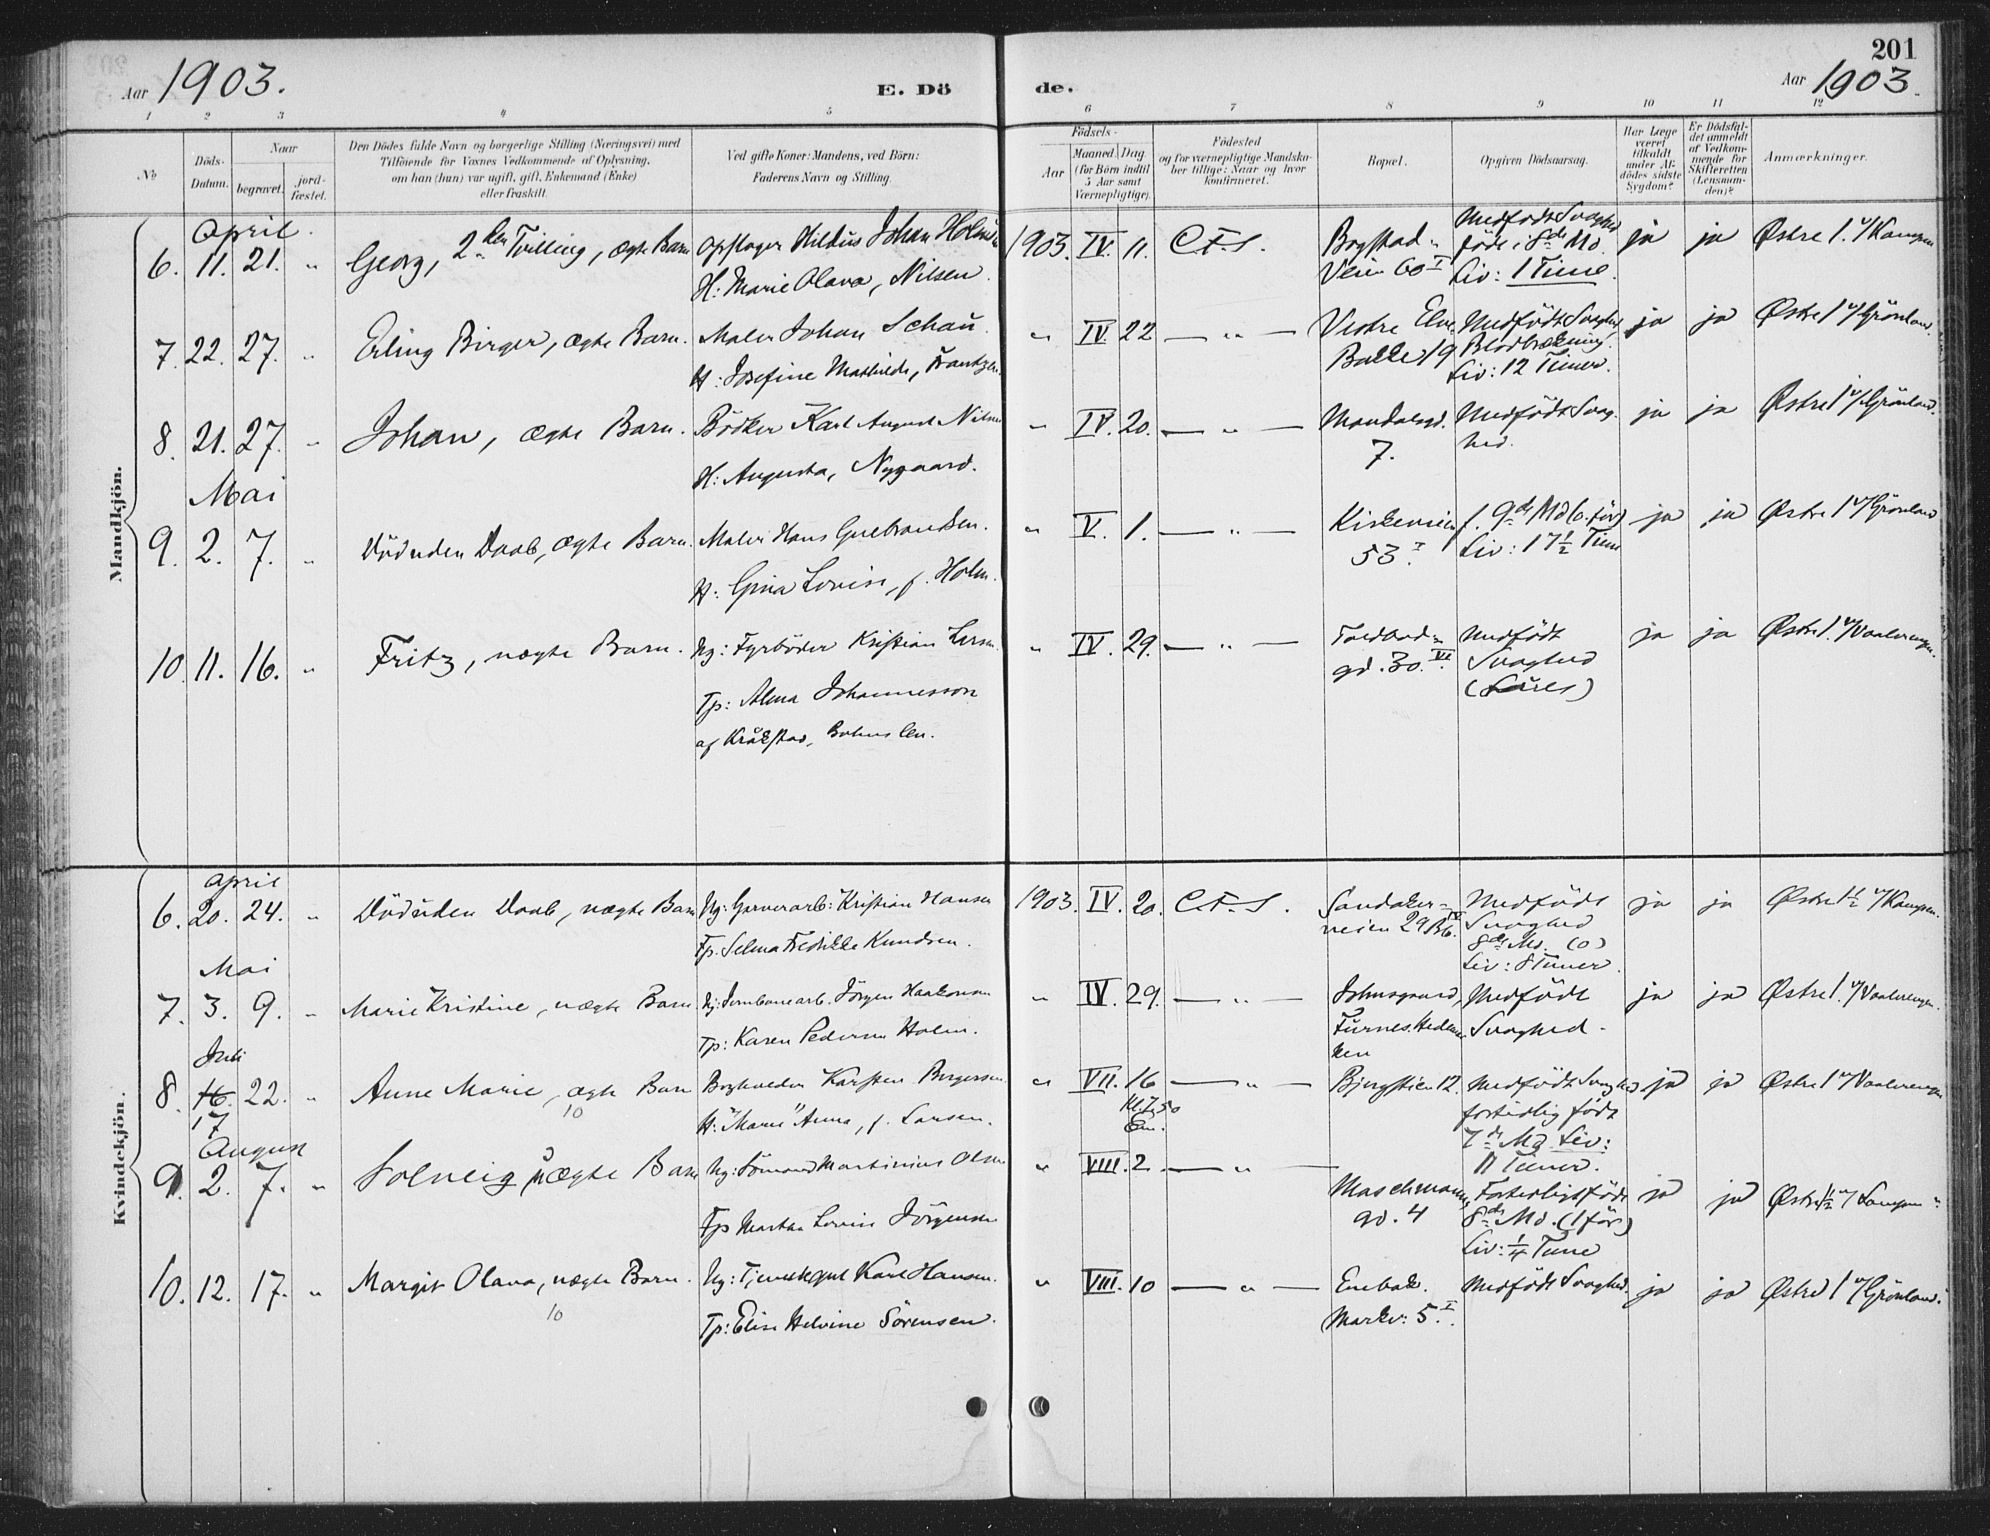 201
Aar 1903.
E. Dö
de.
Aar 1903.
1 2 3 4 5 6 7 8 9 10 11 12
No
Döds-
Datum.
Naar
begravet.
jord-
fæstet.
Den Dödes fulde Navn og borgerlige Stilling (Næringsvei) med
Tilföiende for Voxnes Vedkommende af Oplysning,
om han (hun) var ugift, gift, Enkemand (Enke)
eller fraskilt.
Ved gifte Koner: Mandens, ved Börn:
Faderens Navn og Stilling.
Födsels-
Aar
Maaned. Dag.
(for Börn indtil
5 Aar samt
Værnepligtige).
Födested
og for værnepligtige Mandska-
ber tillige: Naar og hvor
konfirmeret.
Bopæl.
Opgiven Dödsaarsag.
Har Læge
været
tilkaldt
under Af-
dödes sidste
Sygdom?
Er Dödsfal-
det anmeldt
af Vedkom-
mende for
Skifteretten
(Lensman-
den)?
Anmærkninger.
Mandkjön.
April.
6. 11. 21. " Georg, 2den Tvilling, ægte Barn
Opsloger Hildus Johan Holm
H: Marie Olava, Nilsen.
1903. IV. 11. C.F.S.
Bogstad-
Veien 60 I
Medfødt Svaghed
født i 8de Md.
Liv: 1 Time.
ja ja Østre 1. v/Kampen
7. 22. 27. " Erling Birger, ægte Barn.
Maler Johan Schau.
H: Josefine Mathilde, Frantzen
" IV. 22 — " —
Vestre Elve
Bakke 19
Medfødt Svaghed
Blodbrækning.
Liv: 12 Timer.
ja ja Østre 1 v/Grönland.
8. 21. 27. " Johan, ægte Barn.
Bödker Karl August Nilsen
H: Augusta, Nygaard.
" IV. 20. — " —
Mandalsgd.
7.
Medfödt Svag-
hed.
ja ja Østre 1 v/Grönland.
Mai
9. 2. 7. " Död uden Daab, ægte Barn.
Maler Hans Gulbrandsen.
H: Gina Lovise, f. Holm.
" V. 1. — " —
Kirkeveien
53 I
f. 9de Md (6. för)
Liv: 17 1/2 Time
ja ja Østre 1 v/Grönland
10. 11. 16. " Fritz, uægte Barn.
Ug: Fyrböder Kristian Larsen.
Tp: Alma Johannesson
af Kråkstad, Bohus len.
" IV. 29. — " —
Toldbod-
gd. 30. VI.
Medfödt
Svaghed
ja ja Østre 1. v/Vaalerengen.
Kvindekjön.
April
6. 20. 24. " Död uden Daab, uægte Barn
Ug: Garverarb: Kristian Hansen
Tp. Selma Fredrikke Knudsen.
1903. IV. 20. C.F.S.
Sandaker-
veien 29 B b. IV
Medfödt
Svaghed
8de Md. (0)
Liv: 8 Timer.
ja ja Østre 1/2 v/Kampen.
Mai
7. 3. 9. " Marie Kristine, uægte Barn
Ug: Jernbanearb. Jörgen Haakonsen
Tp: Karen Pedersen Holm.
" IV. 29. — " —
Johnsgaard,
Furnes. Hedemar-
ken
Medfödt
Svaghed.
ja ja Østre 1. v/Vaalerengen.
Juli
8. 16. 22. " Anne Marie, ægte Barn
17
10
Bogholder Karsten Borgersen.
H: "Marie" Anna, f. Larsen.
" VII. 16 — " —
Kl. 7,50
Em.
Bjergstien 12.
Medfödt Svaghed
fortidlig født
7de Md Liv:
11 Timer.
ja ja Østre 1 v/Vaalerengen
August
9. 2. 7. " Solveig, uægte Barn
Ug: Sömand Martinius Olsen
Tp Martha Lovise Jörgensen
" VIII. 2 — " —
Maschmanns
gd. 4
Fortidligt född
8de Md. (1 för)
Liv: 1/4 Time
ja ja Østre 1/2 v/Kampen
10. 12. 17. " Margit Olava, uægte Barn.
10
Ug: Tjenestegut Karl Hansen.
Tp: Elise Helvine Sörensen.
" VIII. 10 — " —
Enebak.
Markv: 5 I.
Medfödt Svaghed.
ja ja Østre 1 v/Grönland.